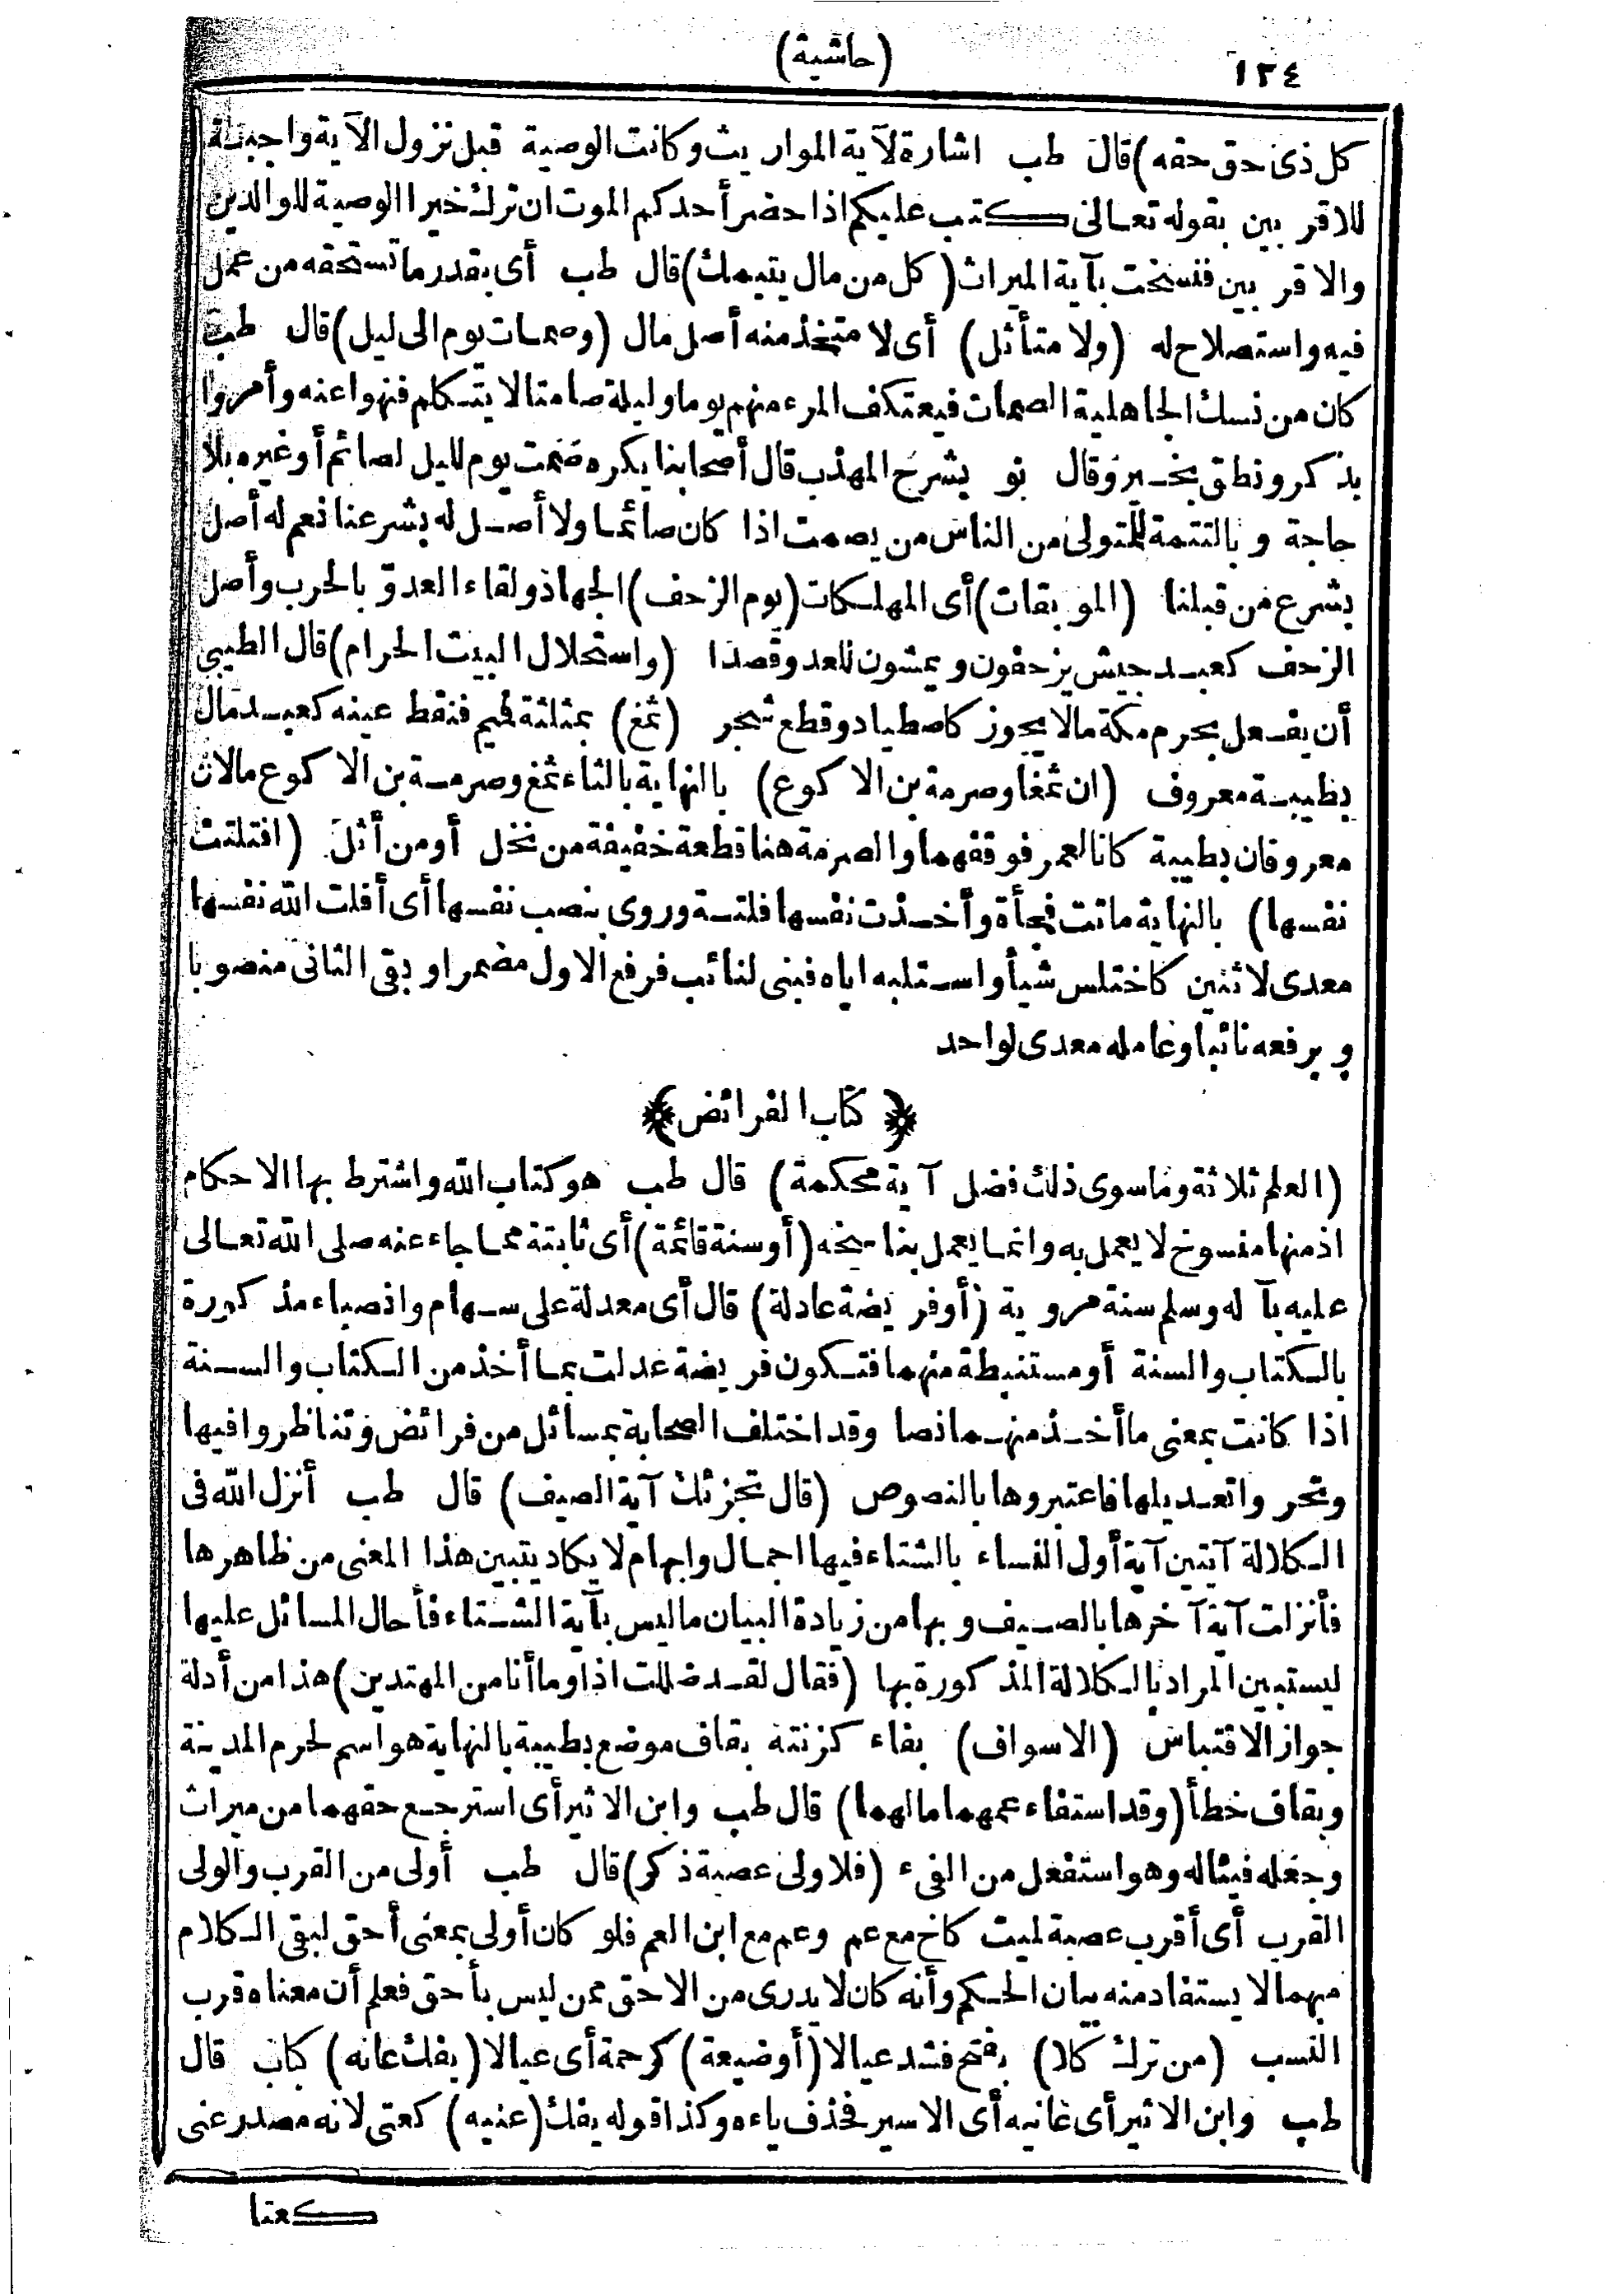 ١٣٤
(حاشية)
كل ذى حق حقه) قال طب اشارة لآية المواريث وكانت الوصية قبل نزول الآية واجبة
للاقربين بقوله تعالى كتب عليكم اذا حضر أحدكم الموت ان ترك خيرا الوصية للوالدين
والاقربين فنسخت بآية الميراث (كل من مال يتيمك) قال طب أى بقدر ما تستحقه من عمل
فيه واستصلاح له (ولا متأثل) أى لا متخذ منه أصل مال (وصمات يوم الى ليل) قال طب
كان من نسك الجاهلية الصمات فيعتكف المرء منهم يوما وليلة صامتا لا يتكلم فنهوا عنه وأمروا
بذكر ونطق بخير وقال نو بشرح المهذب قال أصحابنا يكره صمت يوم لليل لصائم أو غيره بلا
حاجة وبالتتمة للمتولى من الناس من يصمت اذا كان صائما ولا أصل له بشرعنا نعم له أصل
بشرع من قبلنا (الموبقات) أى المهلكات (يوم الزحف) الجهاد ولقاء العدو بالحرب وأصل
الزحف كعبد جيش يزحفون ويمشون للعدو قصدا (واستحلال البيت الحرام) قال الطيبى
أن يفعل بحرم مكة ما لا يجوز كاصطياد وقطع شجر (ثمغ) بمثلثة فميم فنقط عينه كعبد مال
بطيبة معروف (ان ثمغا وصرمة بن الاكوع) بالنهاية بالثاء ثمغ وصرمة بن الاكوع مالان
معروفان بطيبة كانا لعمر فوقفهما والصرمة هنا قطعة خفيفة من نخل أو من أثل (افتلتت
نفسها) بالنهاية ماتت فجأة وأخذت نفسها فلتة وروى بنصب نفسها أى أفلت الله نفسها
معدى لاثنين كاختلس شيأ واستلبه اياه فبنى لنائب فرفع الاول مضمرا وبقى الثانى منصوبا
وبرفعه نائبا وعامله معدى لواحد
﴿كتاب الفرائض﴾
(العلم ثلاثة وما سوى ذلك فضل آية محكمة) قال طب هو كتاب الله واشترط بها الاحكام
اذ منها منسوخ لا يعمل به وانما يعمل بناسخه (أو سنة قائمة) أى ثابتة مما جاء عنه صلى الله تعالى
عليه بآله وسلم سنة مروية (أو فريضة عادلة) قال أى معدلة على سهام وانصباء مذكورة
بالكتاب والسنة أو مستنبطة منهما فتكون فريضة عدلت بما أخذ من الكتاب والسنة
اذا كانت بمعنى ما أخذ منهما نصا وقد اختلف الصحابة بمسائل من فرائض وتناظروا فيها
وتحروا تعديلها فاعتبروها بالنصوص (قال تجزئك آية الصيف) قال طب أنزل الله فى
الكلالة آيتين آية أول النساء بالشتاء فيها اجمال وابهام لا يكاد يتبين هذا المعنى من ظاهرها
فأنزلت آية آخرها بالصيف وبها من زيادة البيان ما ليس بآية الشتاء فأحال المسائل عليها
ليستبين المراد بالكلالة المذكورة بها (فقال لقد ضللت اذا وما أنا من المهتدين) هذا من أدلة
جواز الاقتباس (الاسواف) بفاء كزنته بقاف موضع بطيبة بالنهاية هو اسم لحرم المدينة
وبقاف خطأ (وقد استفاء عمهما مالهما) قال طب وابن الاثير أى استرجع حقهما من ميراث
وجعله فيئا له وهو استفعل من الفىء (فلاولى عصبة ذكر) قال طب أولى من القرب والولى
القرب أى أقرب عصبة لميت كاخ مع عم وعم مع ابن العم فلو كان أولى بمعنى أحق لبقى الكلام
مبهما لا يستفاد منه بيان الحكم وأنه كان لا يدرى من الاحق ممن ليس بأحق فعلم أن معناه قرب
النسب (من ترك كلا) بفتح فشد عيالا (أو ضيعة) كرحمة أى عيالا (يفك عانه) كباب قال
طب وابن الاثير أى عانيه أى الاسير فحذف ياءه وكذا قوله يفك (عنيه) كعتى لانه مصدر عنى
كعتا